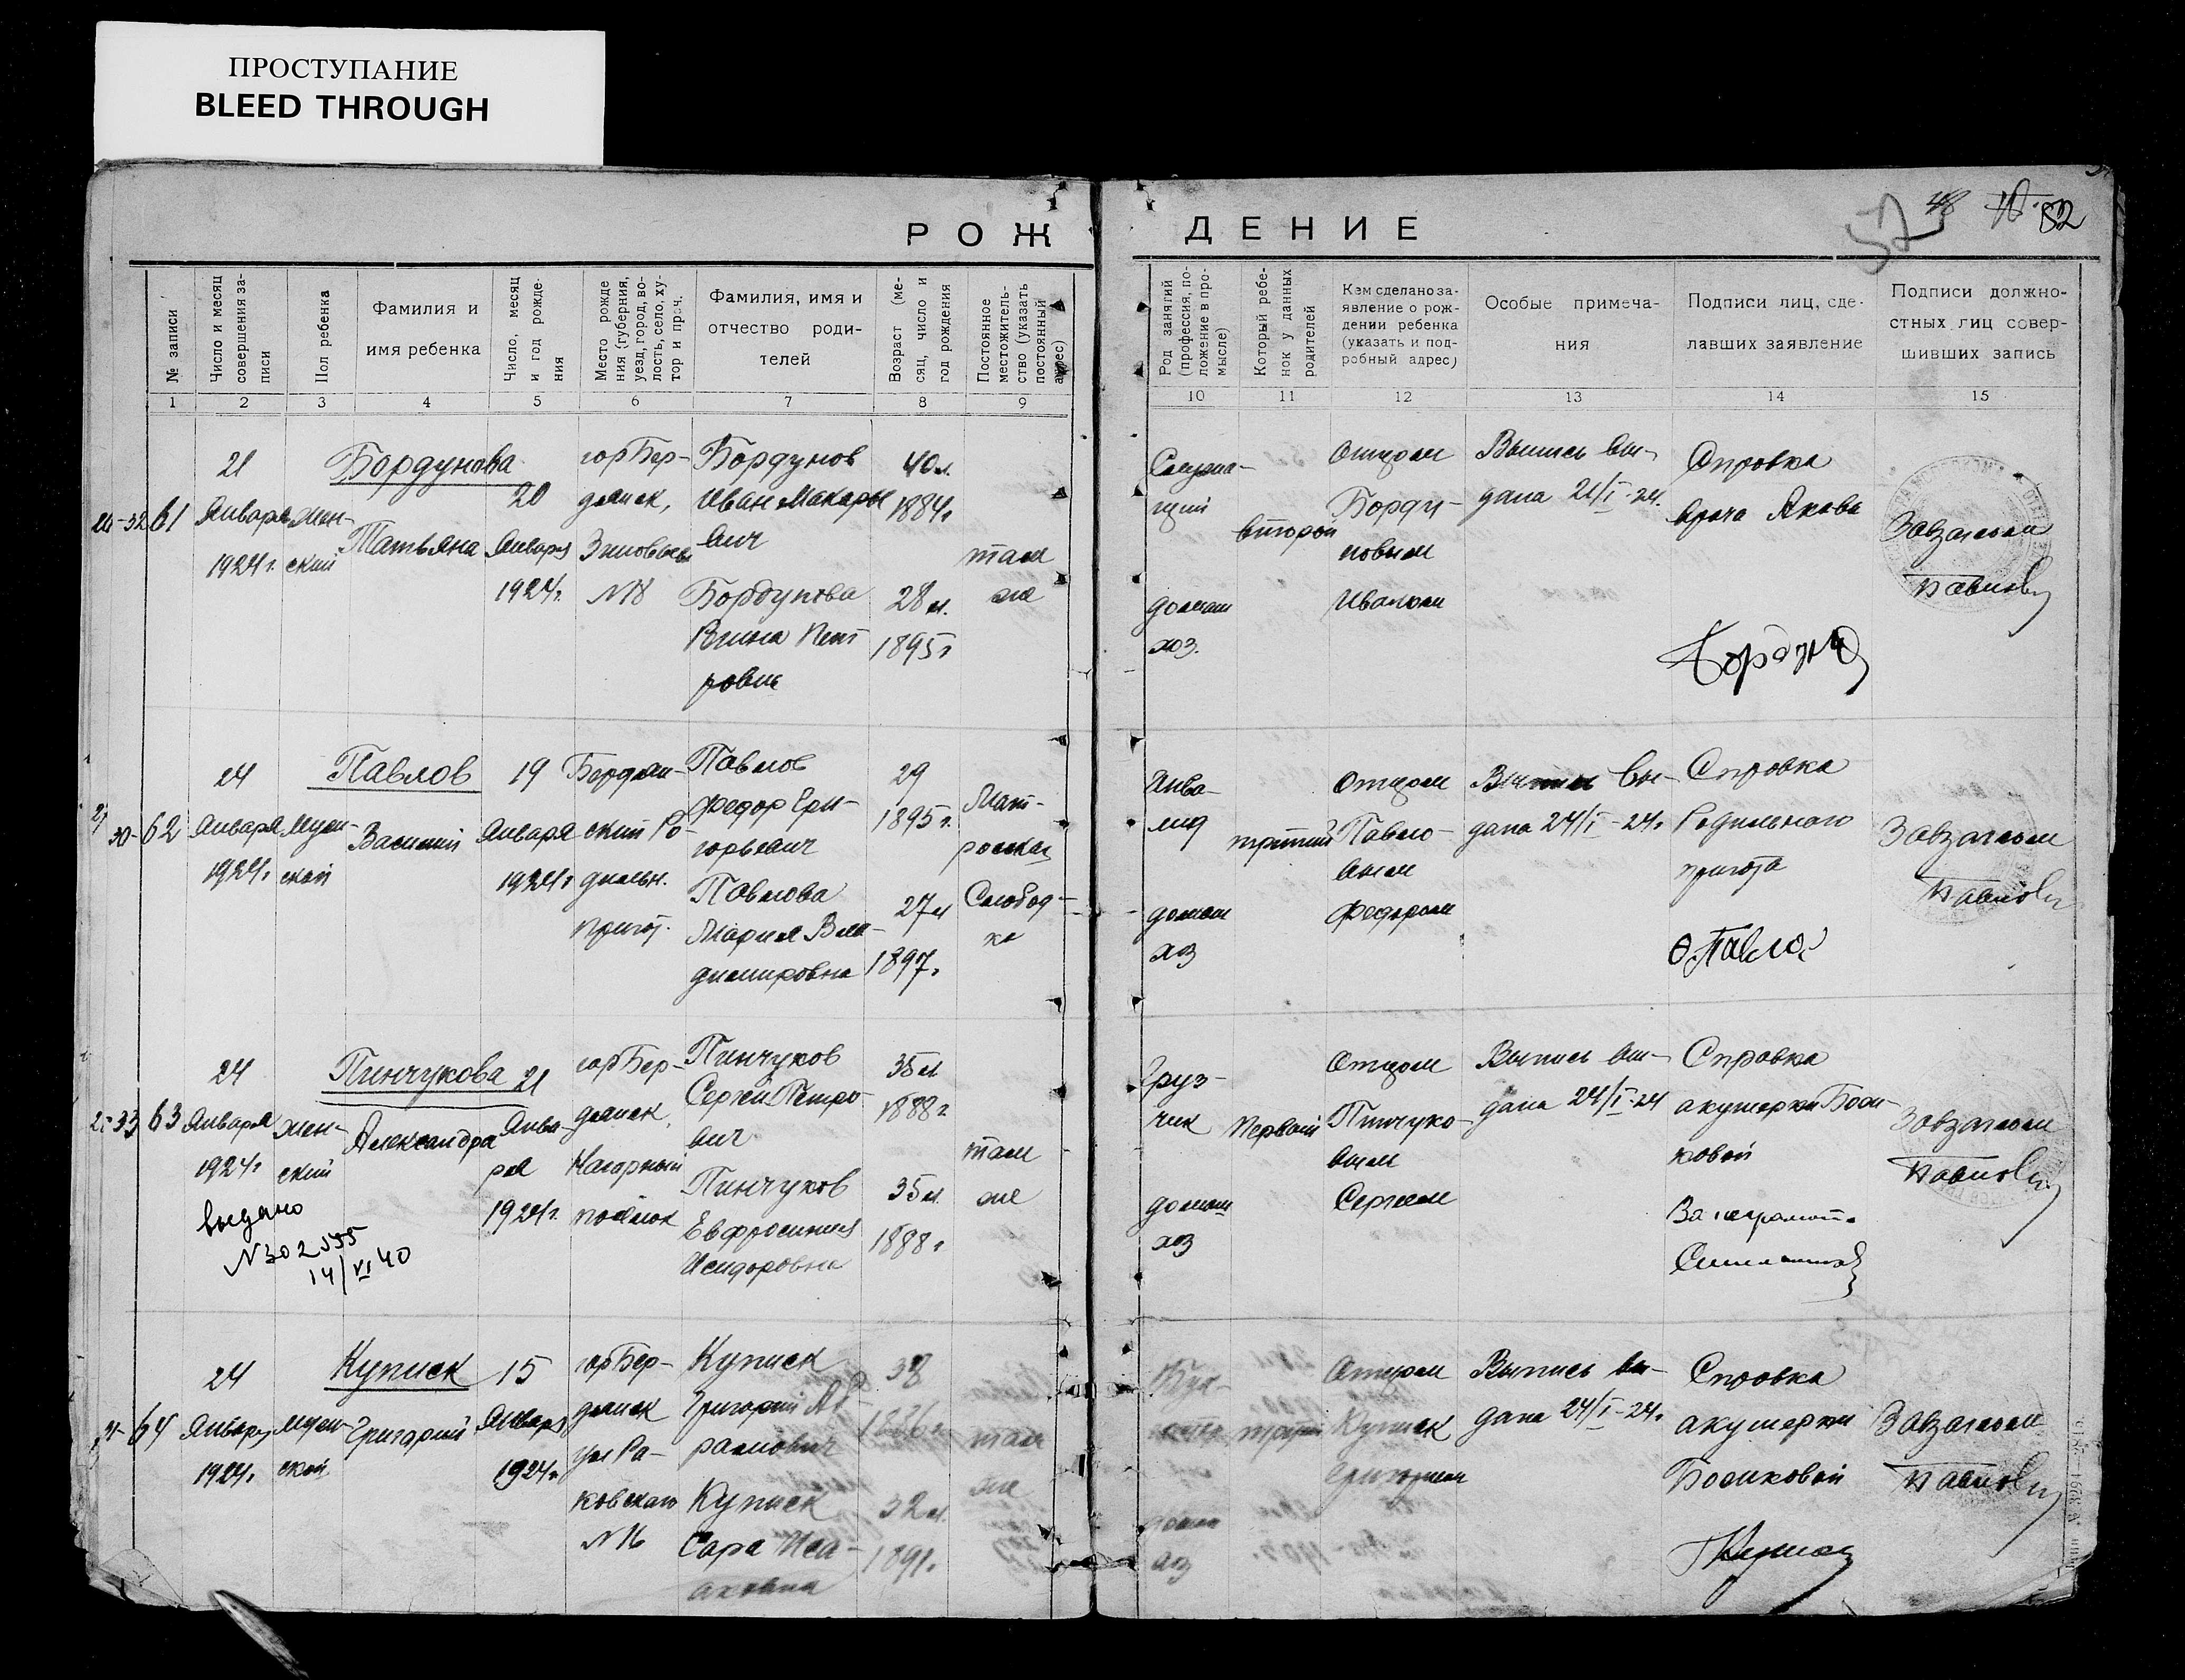 ПРОСТУПАНИЕ
BLEED THROUGH
РОЖДЕНИЕ
57 48 82
№ записи
Число и месяц совершения записи
Пол ребенка
Фамилия и
имя ребенка
Число, месяц и год рождения
Место рождения (губерния, уезд, город, волость, село, хутор и проч.
Фамилия, имя и
отчество роди-
телей
Возраст (месяц, число и год рождения
Постоянное местожительство (указать постоянный адрес)
Род занятий (профессия, положение в промысле)
Который ребенок у данных родителей
Кем сделано за-
явление о рож-
дении ребенка
(указать и под-
робный адрес)
Особые примеча-
ния
Подписи лиц, сде-
лавших заявление
Подписи должно-
стных лиц совер-
шивших запись
1 2 3 4 5 6 7 8 9 10 11 12 13 14 15
61
21
Января
1924 г.
жен-
ский
Бордунова
Татьяна
20
Января
1924 г.
гор Бер-
дянск,
N 18
Бордунов
Иван Макарье
вич
Бордунова
Пет
ровна
40 л.
1884 г
28 л.
1895 г
там
же
Служа-
щий
домаш
хоз.
второй
Отцом
Борду-
новым
Иваном
Выпись вы-
дана 21/I-24.
Справка
врача
Завзагсом
62
24
Января
1924 г.
муж-
ской
Павлов
Василий
19
Января
1924 г
Бердян-
ский Ро-
дильн.
приют.
Павлов
Федор Гри-
горьевич
Павлова
Мария Вла-
димировна
29
1895 г.
27 л
1897 г.
Мат-
росская
Слобод-
ка
Инва-
лид
домаш
хоз
третий
Отцом
Павло-
вым
Федором
Выпись вы-
дана 24/I-24.
Справка
Родильного
приюта
Завзагсом
63
24
Января
1924 г
жен-
ский
выдано
N 302535
14/VI 40
Пинчукова
Александра
21
Янва-
ря
1924 г.
гор Бер-
дянск,
Нагорный
посёлок
Пинчуков
Сергей Петро-
вич
Пинчуков
Евфросиния
Исидоровна
35 л
1888 г
35 л.
1888 г
там
же
Груз-
чик
домаш
хоз
Первый
Отцом
Пинчуко-
вым
Сергеем
Выпись вы-
дана 24/I-24
Справка
акушерки Боси-
ковой
За неграмот.
Завзагсом
64
24
Января
1924 г.
муж-
ской
Куписк
Григорий
15
Января
1924 г.
гор Бер-
дянск
ул Ра-
ковского
N 16
Куписк
Григорий Аб-
рамович
Куписк
Сара Иса-
аковна
38
1886 г.
32 л.
1891 г.
там
же
домаш
хоз
третий
Отцом
Куписк
Григорием
Выпись вы-
дана 24/I-24.
Справка
акушерки
Босиковой
Завзагсом